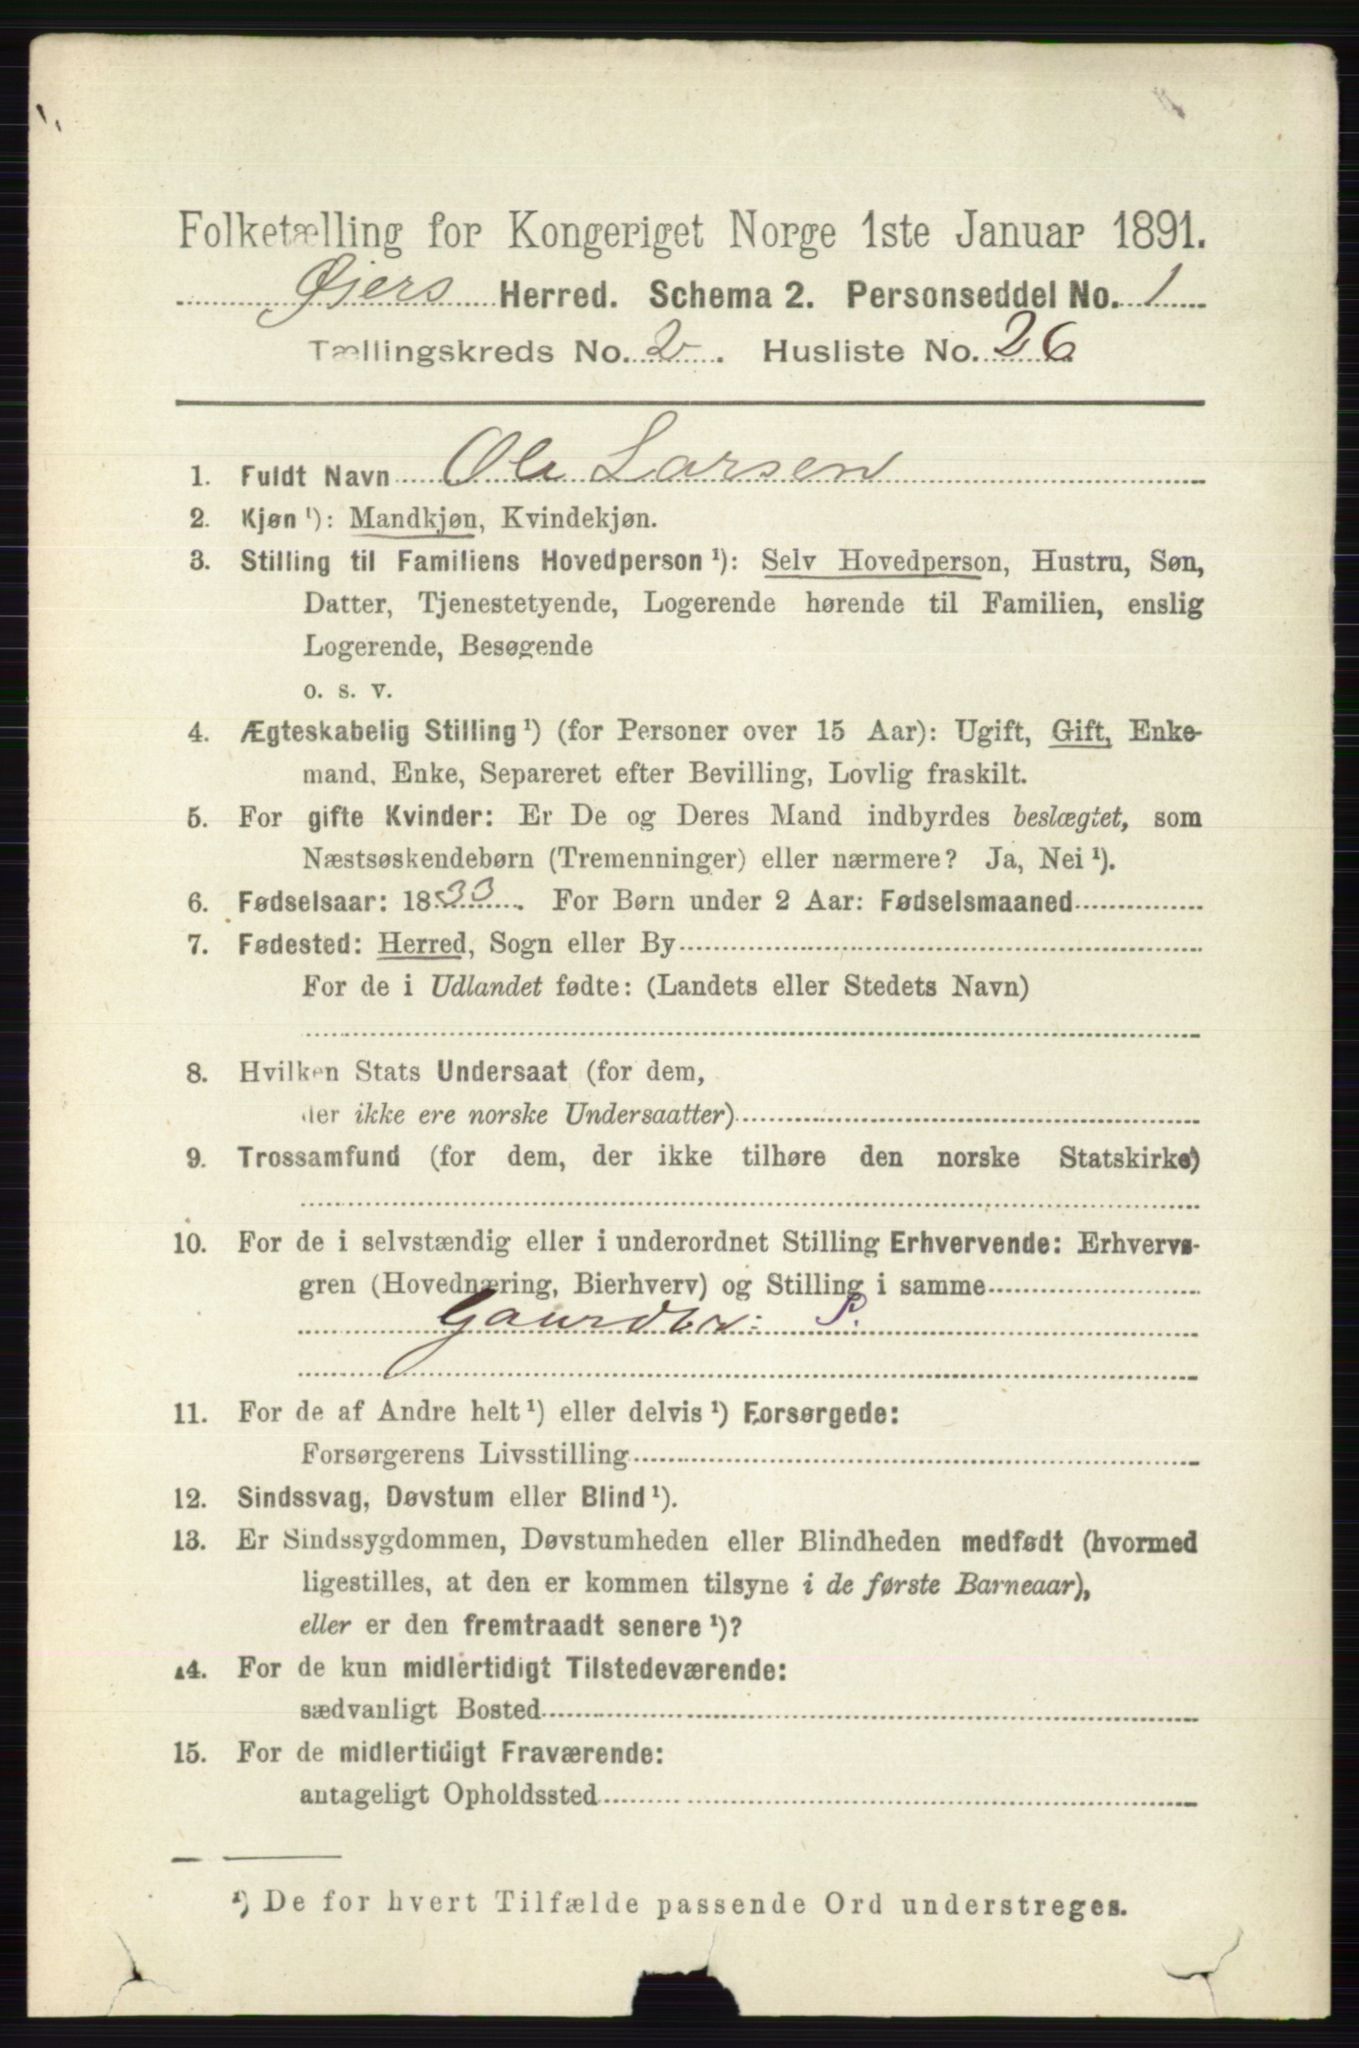 Folketælling for Kongeriget Norge 1ste Januar 1891.
Øjers Herred. Schema 2. Personseddel No. 1
Tællingskreds No. 2. Husliste No. 26
1. Fuldt Navn Ole Larsen
2. Kjøn ¹): Mandkjøn, Kvindekjøn.
3. Stilling til Familiens Hovedperson ¹): Selv Hovedperson, Hustru, Søn,
Datter, Tjenestetyende, Logerende hørende til Familien, enslig
Logerende, Besøgende
o. s. v.
4. Ægteskabelig Stilling ¹) (for Personer over 15 Aar): Ugift, Gift, Enke-
mand, Enke, Separeret efter Bevilling, Lovlig fraskilt.
5. For gifte Kvinder: Er De og Deres Mand indbyrdes beslægtet, som
Næstsøskendebørn (Tremenninger) eller nærmere? Ja, Nei ¹).
6. Fødselsaar: 1833. For Børn under 2 Aar: Fødselsmaaned
7. Fødested: Herred, Sogn eller By
For de i Udlandet fødte: (Landets eller Stedets Navn)
8. Hvilken Stats Undersaat (for dem,
der ikke ere norske Undersaatter)
9. Trossamfund (for dem, der ikke tilhøre den norske Statskirke)
10. For de i selvstændig eller i underordnet Stilling Erhvervende: Erhvervs-
gren (Hovednæring, Bierhverv) og Stilling i samme
Gaardbr: S.
11. For de af Andre helt ¹) eller delvis ¹) Forsørgede:
Forsørgerens Livsstilling
12. Sindssvag, Døvstum eller Blind ¹).
13. Er Sindssygdommen, Døvstumheden eller Blindheden medfødt (hvormed
ligestilles, at den er kommen tilsyne i de første Barneaar),
eller er den fremtraadt senere ¹)?
14. For de kun midlertidigt Tilstedeværende:
sædvanligt Bosted
15. For de midlertidigt Fraværende:
antageligt Opholdssted
¹) De for hvert Tilfælde passende Ord understreges.